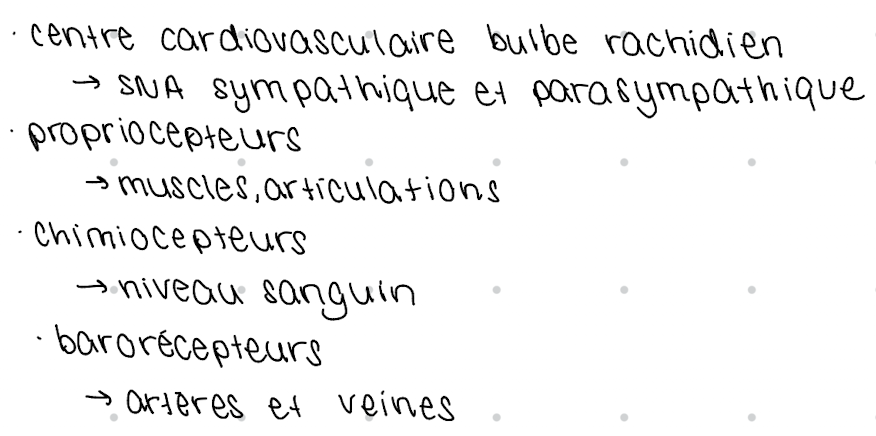 · centre cardiovasculaire bulbe rachidien
→ SNA sympathique et parasympathique
· propriocepteurs
→ muscles, articulations
· chimiocepteurs
→ niveau sanguin
· barorécepteurs
→ artères et veines